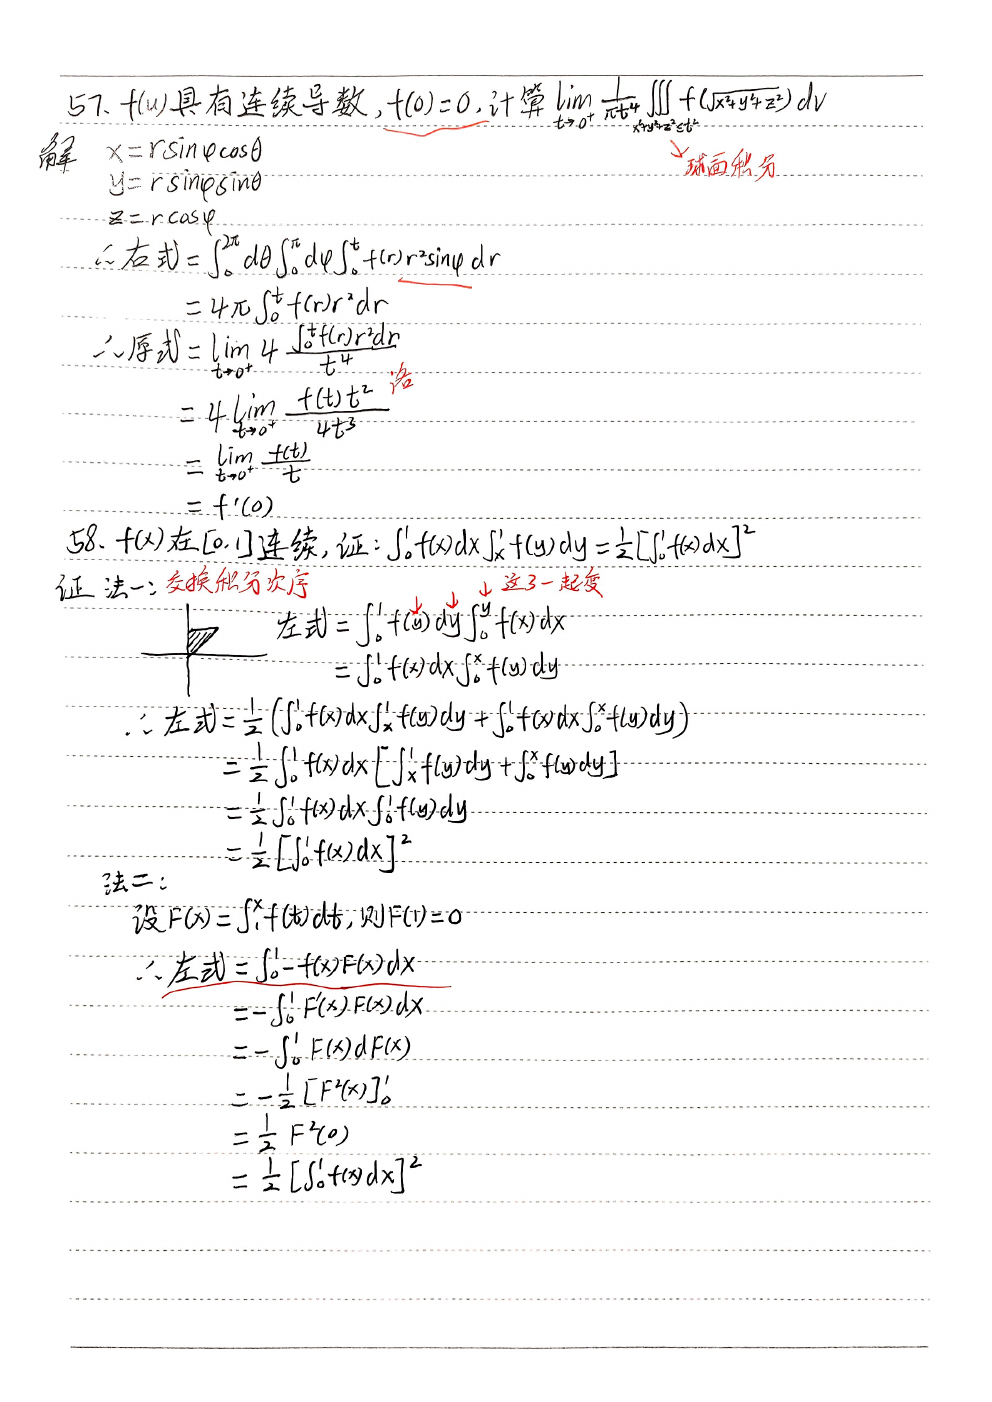 57、f(u)具有连续导数, f(0)=0, 计算 lim_{t→0⁺} 1/(πt⁴) ∭_{x²+y²+z²≤t²} f(√(x²+y²+z²)) dv
球面积分
解 x=rsinφcosθ
y=rsinφsinθ
z=rcosφ
∴右式=∫₀^{2π}dθ∫₀^π dφ∫₀^t f(r)r²sinφ dr
=4π∫₀^t f(r)r²dr
∴原式=lim_{t→0⁺} 4 (∫₀^t f(r)r²dr)/t⁴
=4 lim_{t→0⁺} (f(t)t²)/(4t³) 洛
=lim_{t→0⁺} f(t)/t
=f'(0)
58、f(x)在[0,1]连续, 证: ∫₀¹f(x)dx∫ₓ¹f(y)dy=½[∫₀¹f(x)dx]²
证 法一: 交换积分次序 ↓ ↓ ↓ 这3一起变
左式=∫₀¹f(y)dy∫₀^y f(x)dx
=∫₀¹f(x)dx∫₀^x f(y)dy
∴左式=½(∫₀¹f(x)dx∫ₓ¹f(y)dy+∫₀¹f(x)dx∫₀^x f(y)dy)
=½∫₀¹f(x)dx[∫ₓ¹f(y)dy+∫₀^x f(y)dy]
=½∫₀¹f(x)dx∫₀¹f(y)dy
=½[∫₀¹f(x)dx]²
法二:
设F(x)=∫₁^x f(t)dt, 则F(1)=0
∴左式=∫₀¹-f(x)F(x)dx
=-∫₀¹F'(x)F(x)dx
=-∫₀¹F(x)dF(x)
=-½[F²(x)]₀¹
=½F²(0)
=½[∫₀¹f(x)dx]²